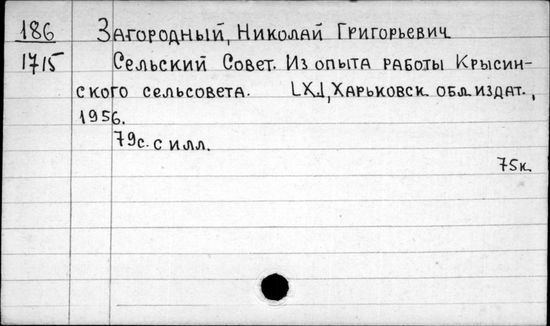 186
1715
Загородный, Николай Григорьевич
Сельский Совет. Из опыта работы Крысин-
ского сельсовета. [Х.], Харьковск. обл. издат.,
1956.
79с. с илл.
75к.